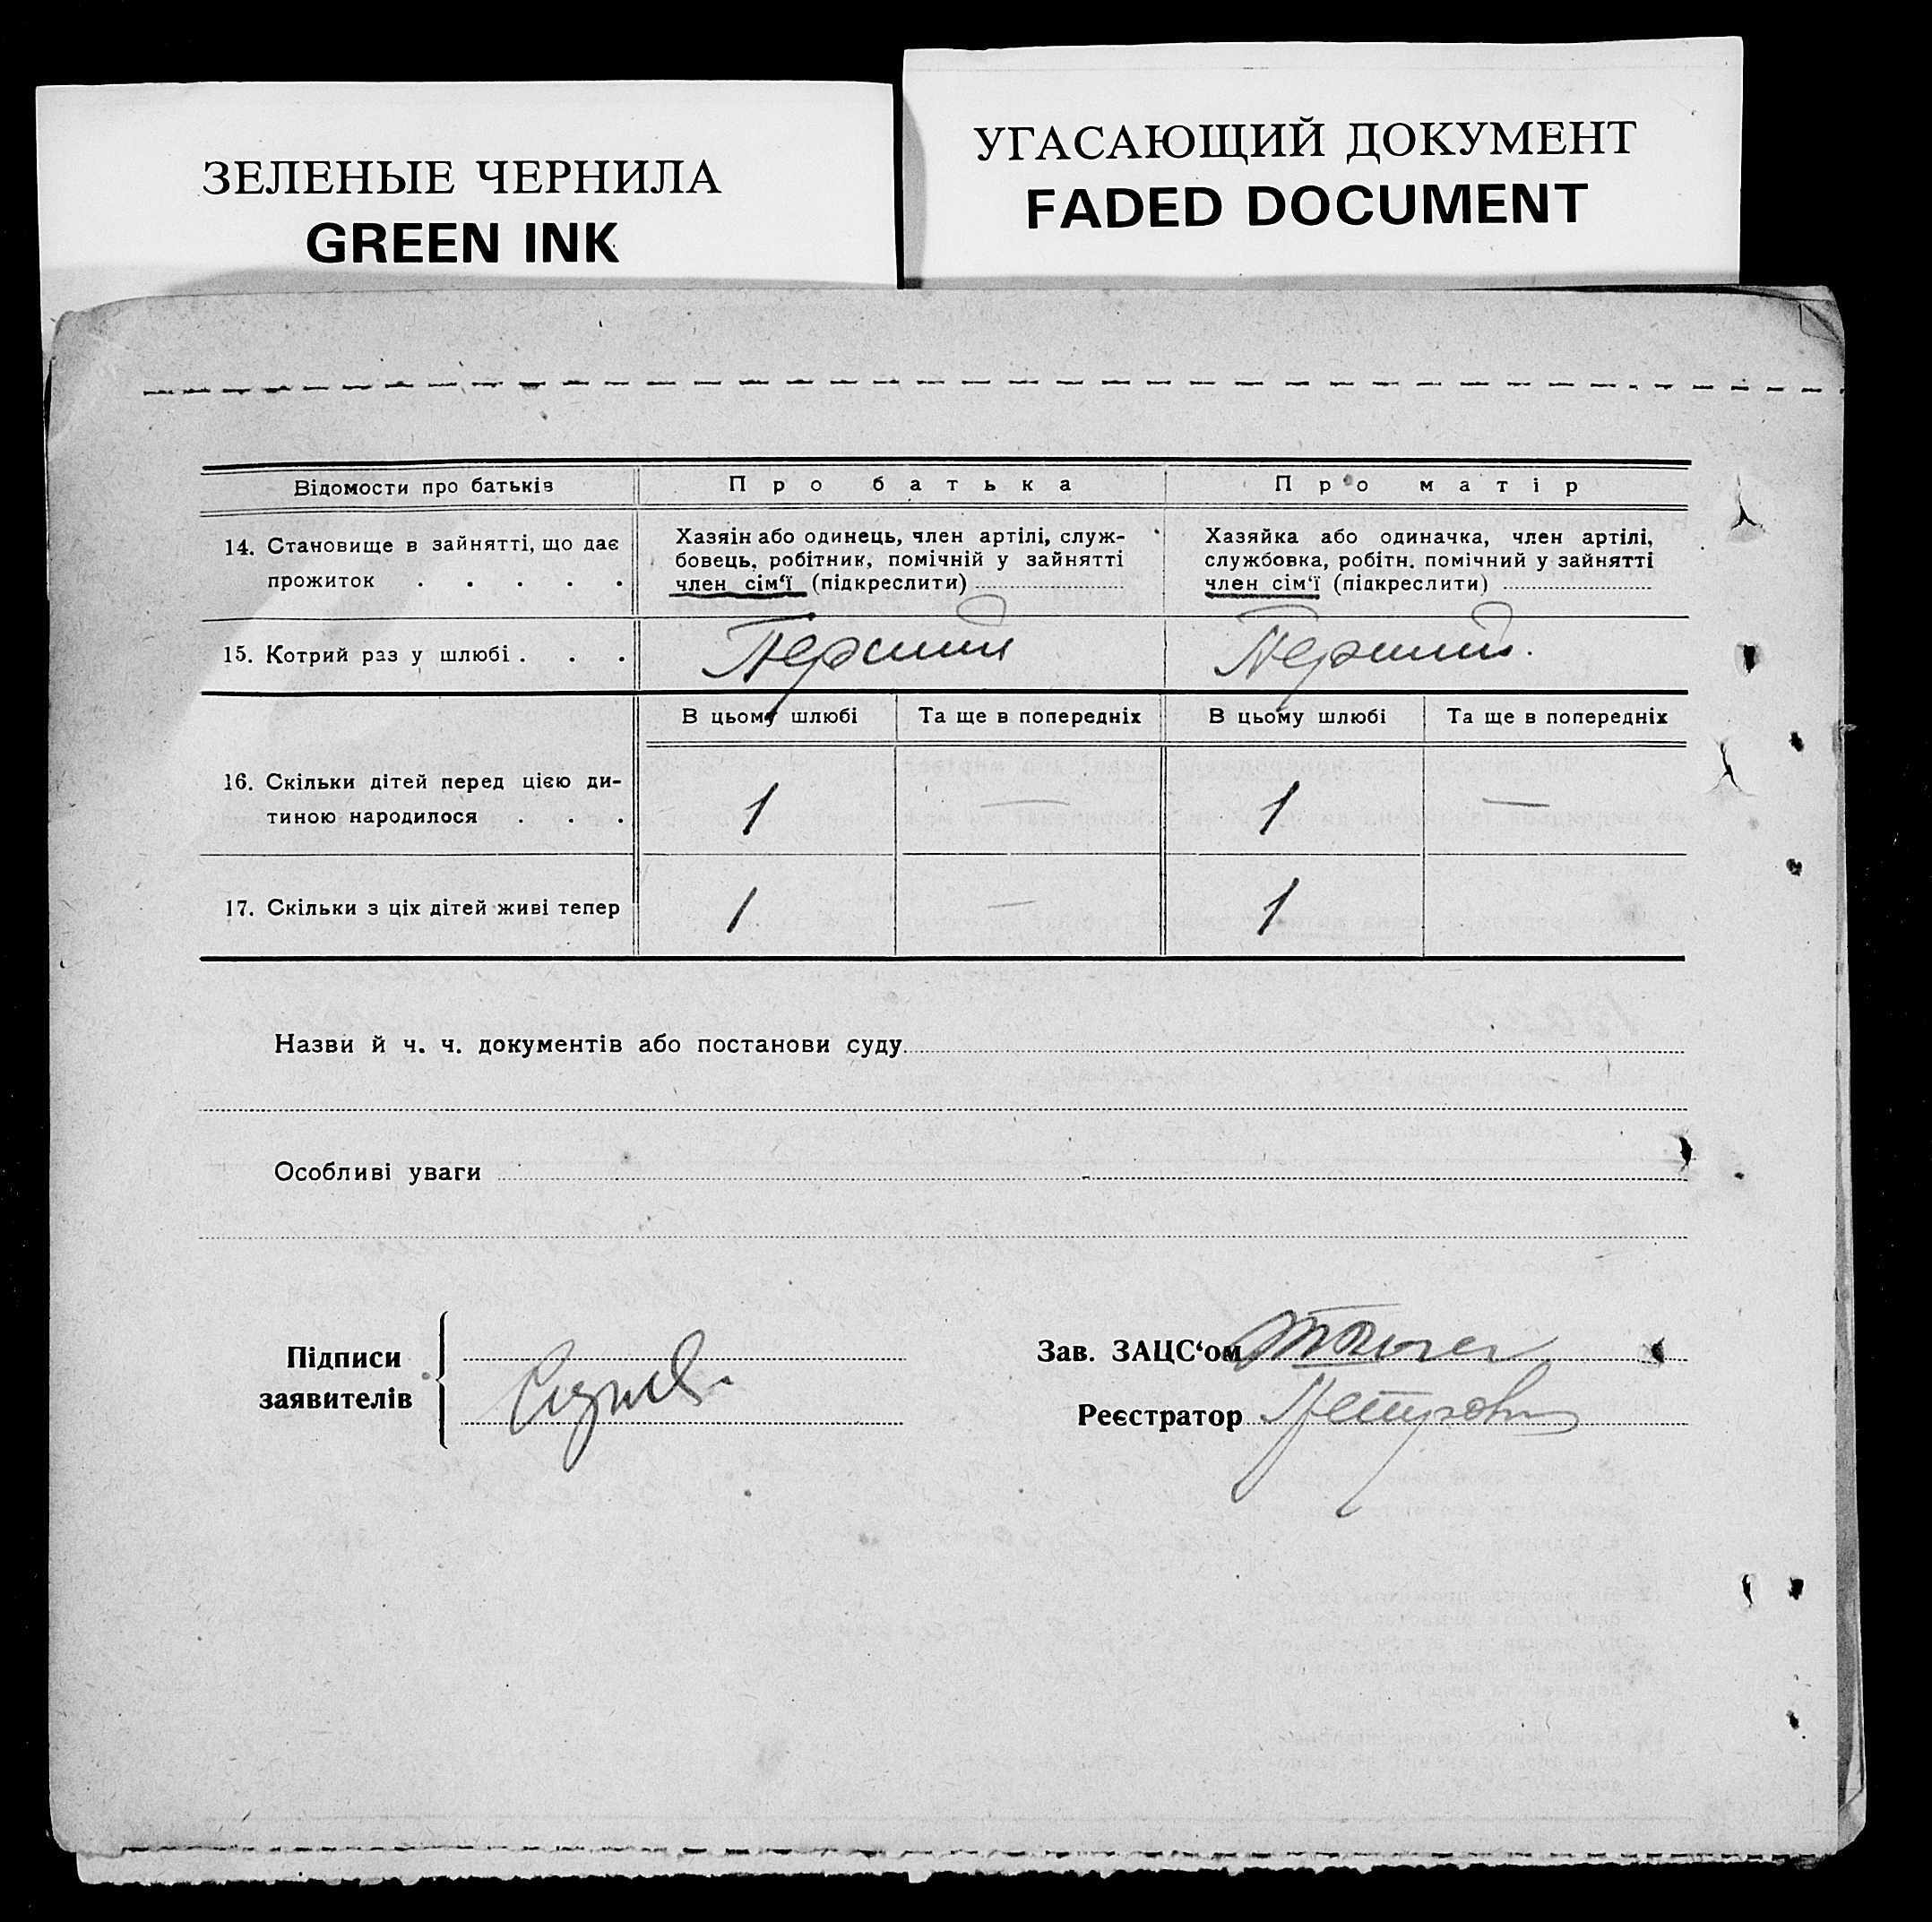 ЗЕЛЕНЫЕ ЧЕРНИЛА
GREEN INK
УГАСАЮЩИЙ ДОКУМЕНТ
FADED DOCUMENT
Відомости про батьків
Про батька
Про матір
14. Становище в зайнятті, що дає
прожиток . . . . .
Хазяін або одинець, член артілі, служ-
бовець, робітник, помічній у зайнятті
член сім‘ї (підкреслити)
Хазяйка або одиначка, член артілі,
службовка, робітн. помічний у зайнятті
член сім‘ї (підкреслити)
15. Котрий раз у шлюбі . . .
Перший
Перший.
В цьому шлюбі
Та ще в попередніх
В цьому шлюбі
Та ще в попередніх
16. Скільки дітей перед цією ди-
тиною народилося . . .
1
—
1
—
17. Скільки з ціх дітей живі тепер
1
—
1
Назви й ч. ч. документів або постанови суду
Особливі уваги
Підписи
заявителів
Зав. ЗАЦС‘ом
Реєстратор